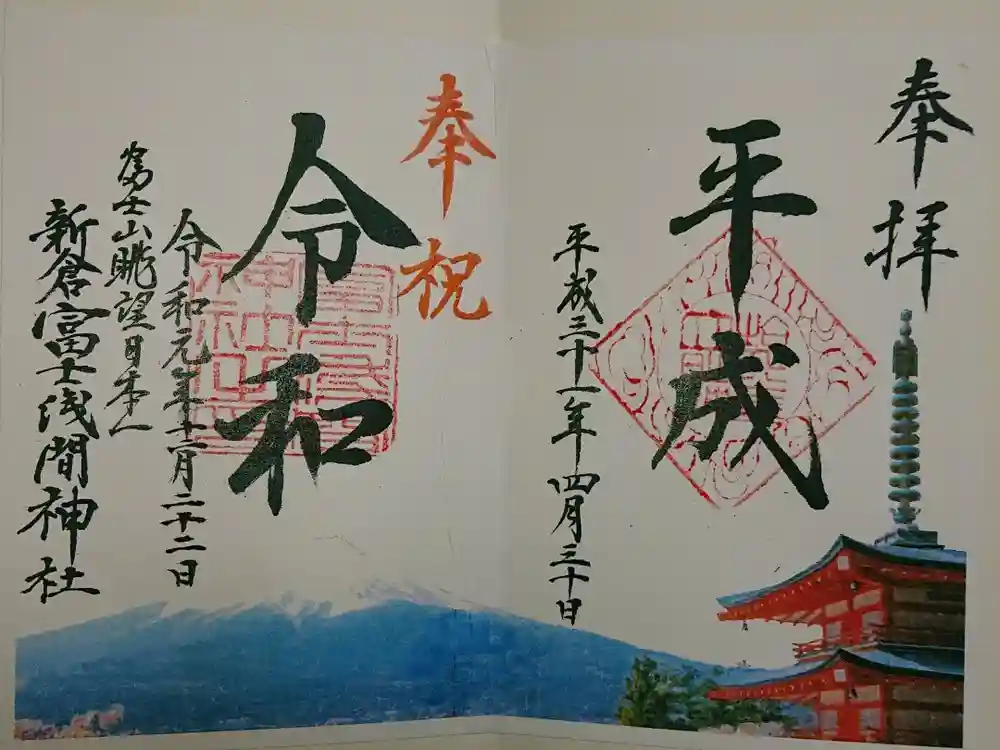 奉拝
平成
平成三十一年四月三十日
奉祝
令和
令和元年十二月二十二日
富士山眺望日本一
新倉富士浅間神社